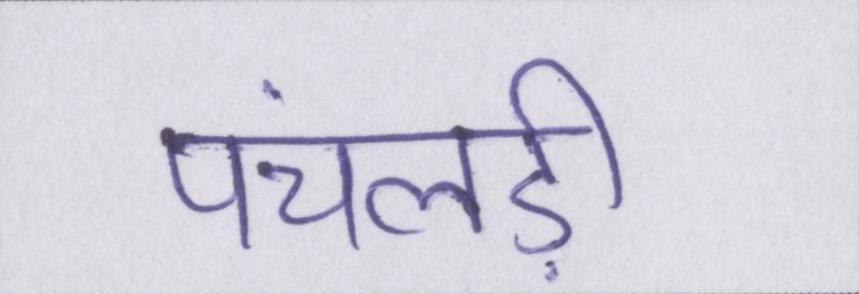 पंचलड़ी